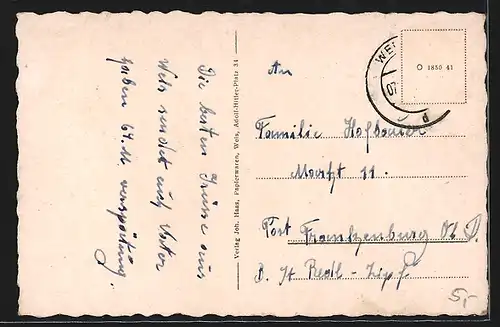 Die besten Grüsse aus
Wels sendet euch Vater
haben 64. M verspätung.
Verlag Joh. Haas, Papierwaren, Wels, Adolf-Hitler-Platz 34
An
WEL
O 1850 41
d
Familie Hofbauer
Markt 11.
Post Frankenburg Ob. D.
B. St Redl-Zipf
5,-